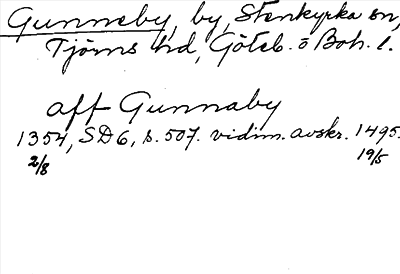 Gunneby, by, Stenkyrka sn,
Tjörns hd, Göteb. o Boh. l.
aff Gunnaby
1354, SD 6, s. 507. vidim. avskr. 1495.
2/8 19/5